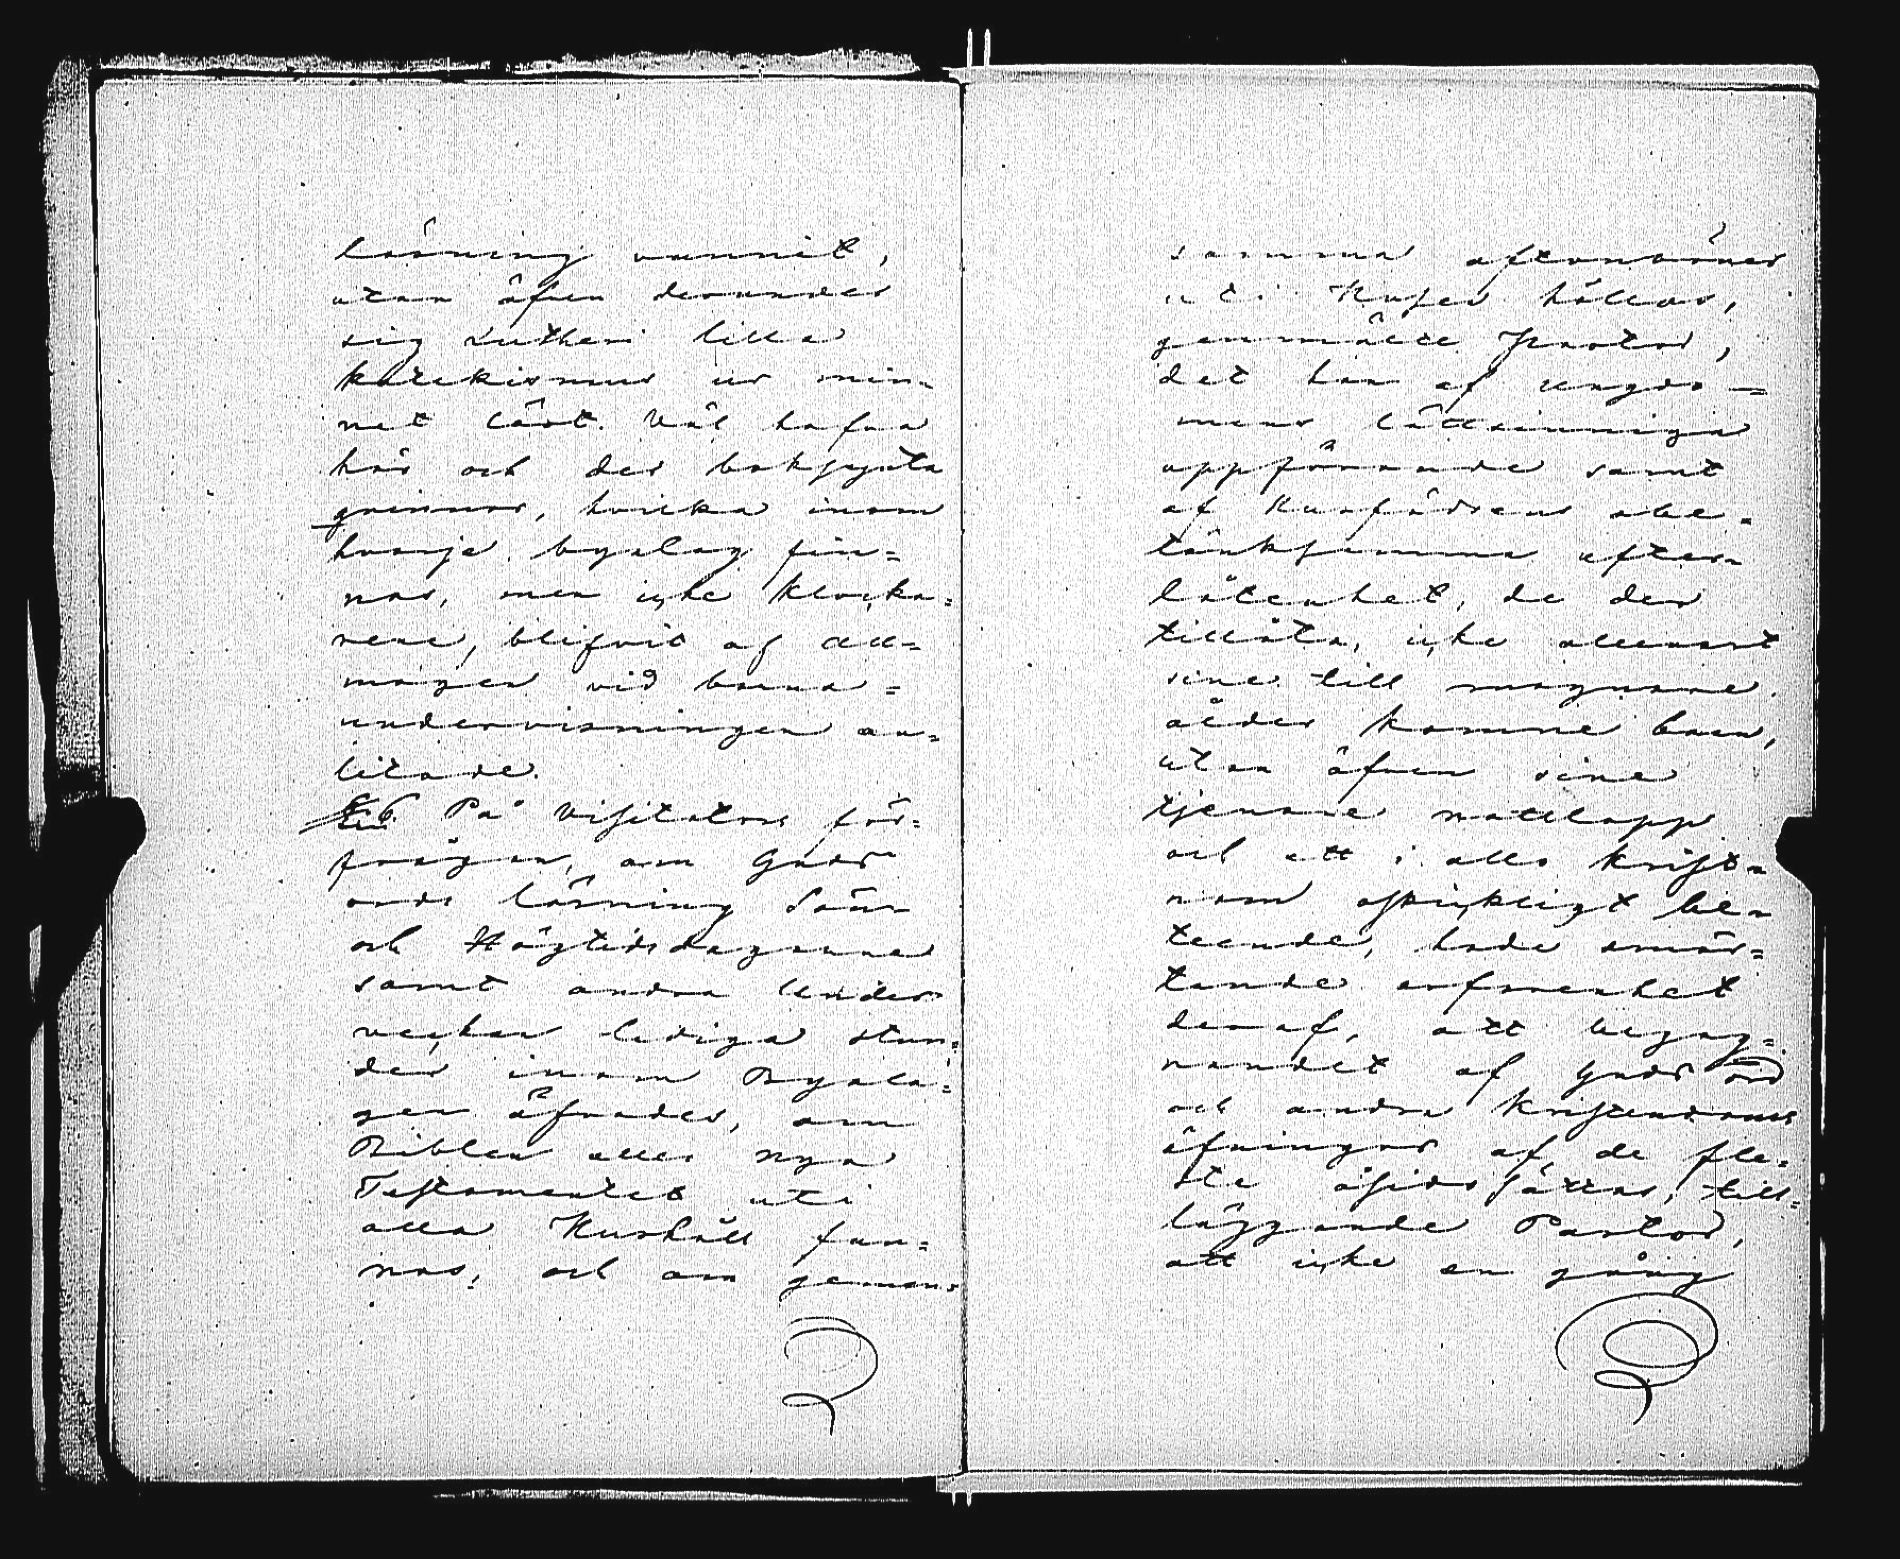 läsning vunnit,
utan äfven derunder
sig Lutheri lilla
katekismus ur min-
net lärt. Väl hafva
här och der bokgynta
qvinnor, hvilka inom
hvarje byalag fin=
nas, men icke klocka=
rene, blifvit af all=
mogen vid barna=
undervisningen an=
litade.
§ 6. På Visitators för=
frågan, om Guds
ords läsning Sön-
och Högtidsdagarne
samt andra under
veckan lediga stun=
der inom Byala=
gen öfvades, om
Biblen eller nya
Testamentet uti
alla Hushåll fun=
nos, och om geman=
samma aftonböner
uti Husen hållas,
genmälte Pastor,
det han af ungdo=
mens lättsinniga
uppförande samt
af Husfädrens obe=
tänksamma efter-
låtenhet, de der
tillåta, icke allenast
sine till mognare
ålder komne barn,
utan äfven sine
tjenare nattlopp
och ett i alla krist-
nom oskickligt be-
teende, hade smär=
tande erfarenhet
deraf, att begag=
nandet af Guds ord
och andra kristendoms
öfningar af de fle=
ste åsidosättas, till=
läggande Pastor,
att icke en gång